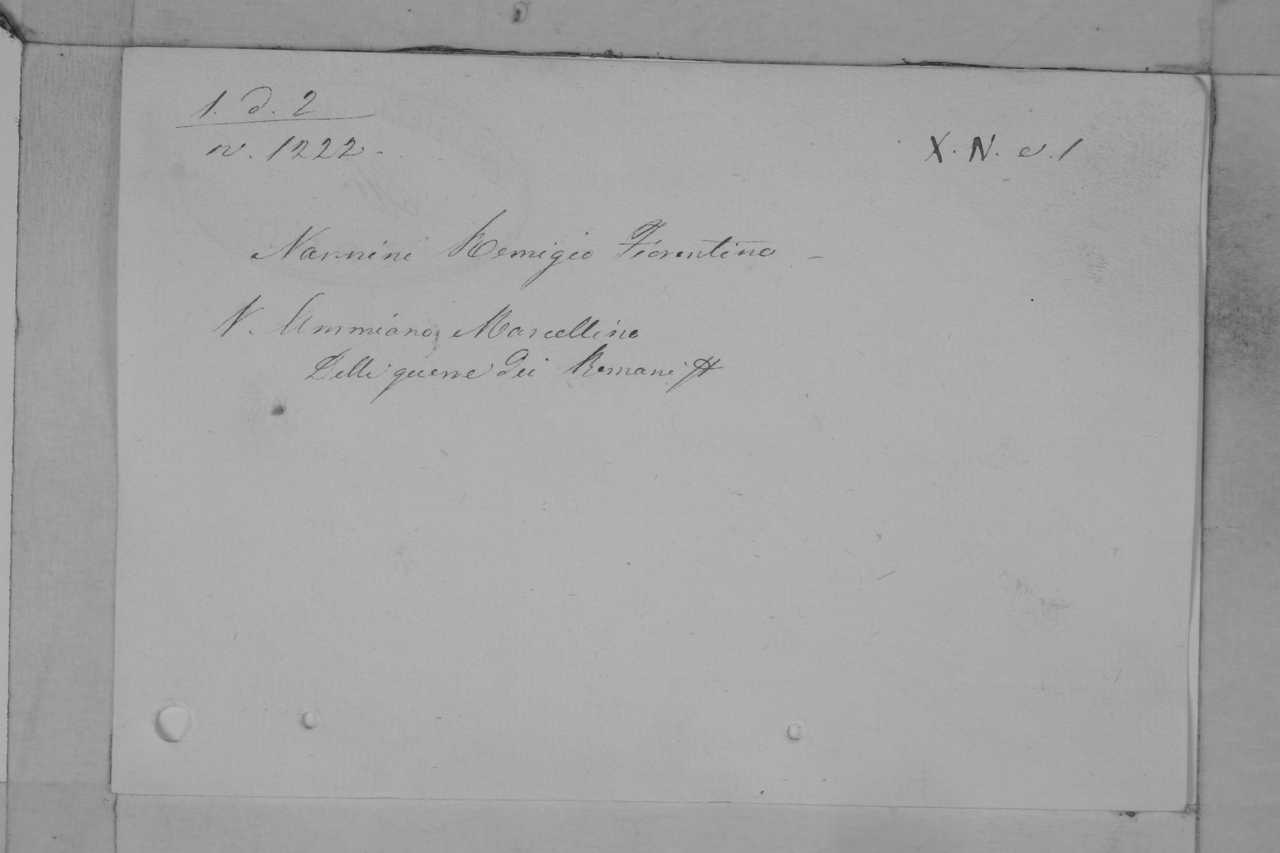 1. d. 2
n. 1222 -
X. N. v. 1
Nannini Remigio Fiorentino -
V. Ammiano Marcellino
Delle guerre dei Romani